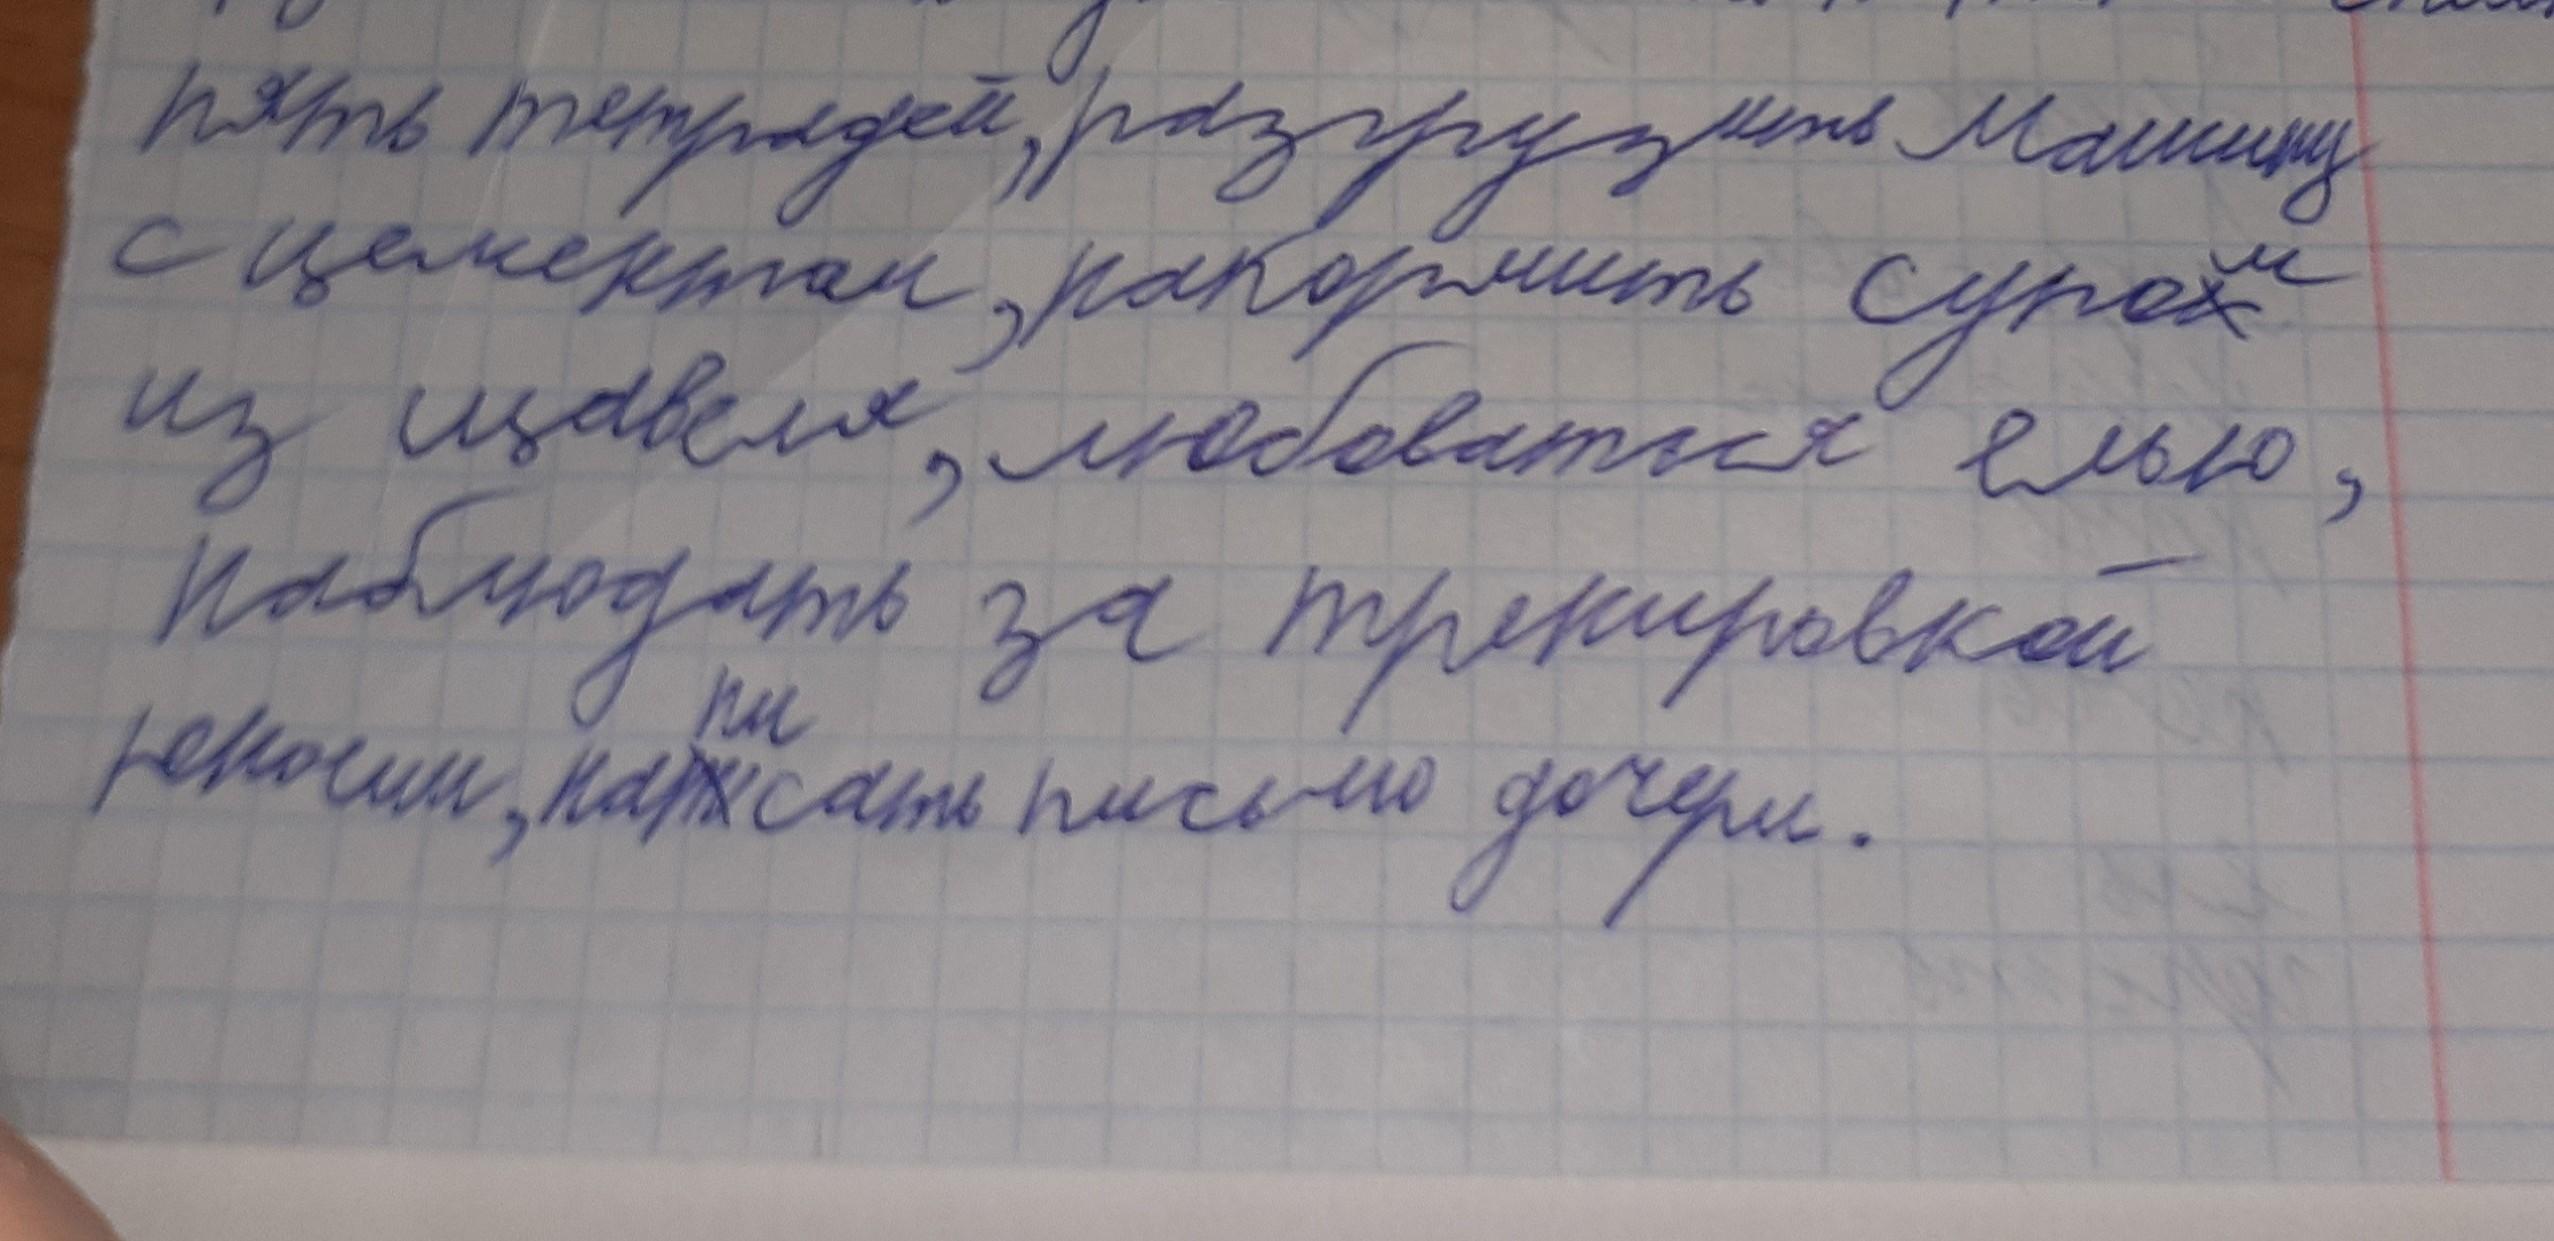 пять тетрадей, разгрузить машину
с цементом, накормить суром
из щавеля, любоваться елью,
наблюдать за тренировкой
юноши, написать письмо дочери.